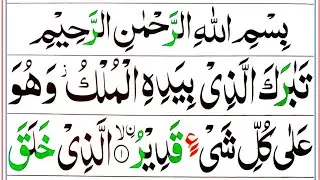 بِسْمِ اللهِ الرَّحْمٰنِ الرَّحِيْمِ
تَبٰرَكَ الَّذِىْ بِيَدِهِ الْمُلْكُ ز وَهُوَ
عَلٰى كُلِّ شَىْءٍ قَدِيْرُ ۨ ۙ ۝۱ الَّذِىْ خَلَقَ